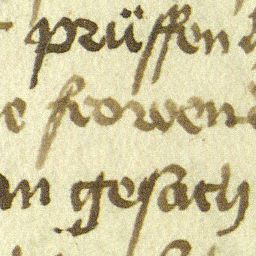 prüffen
frowen
an gesach